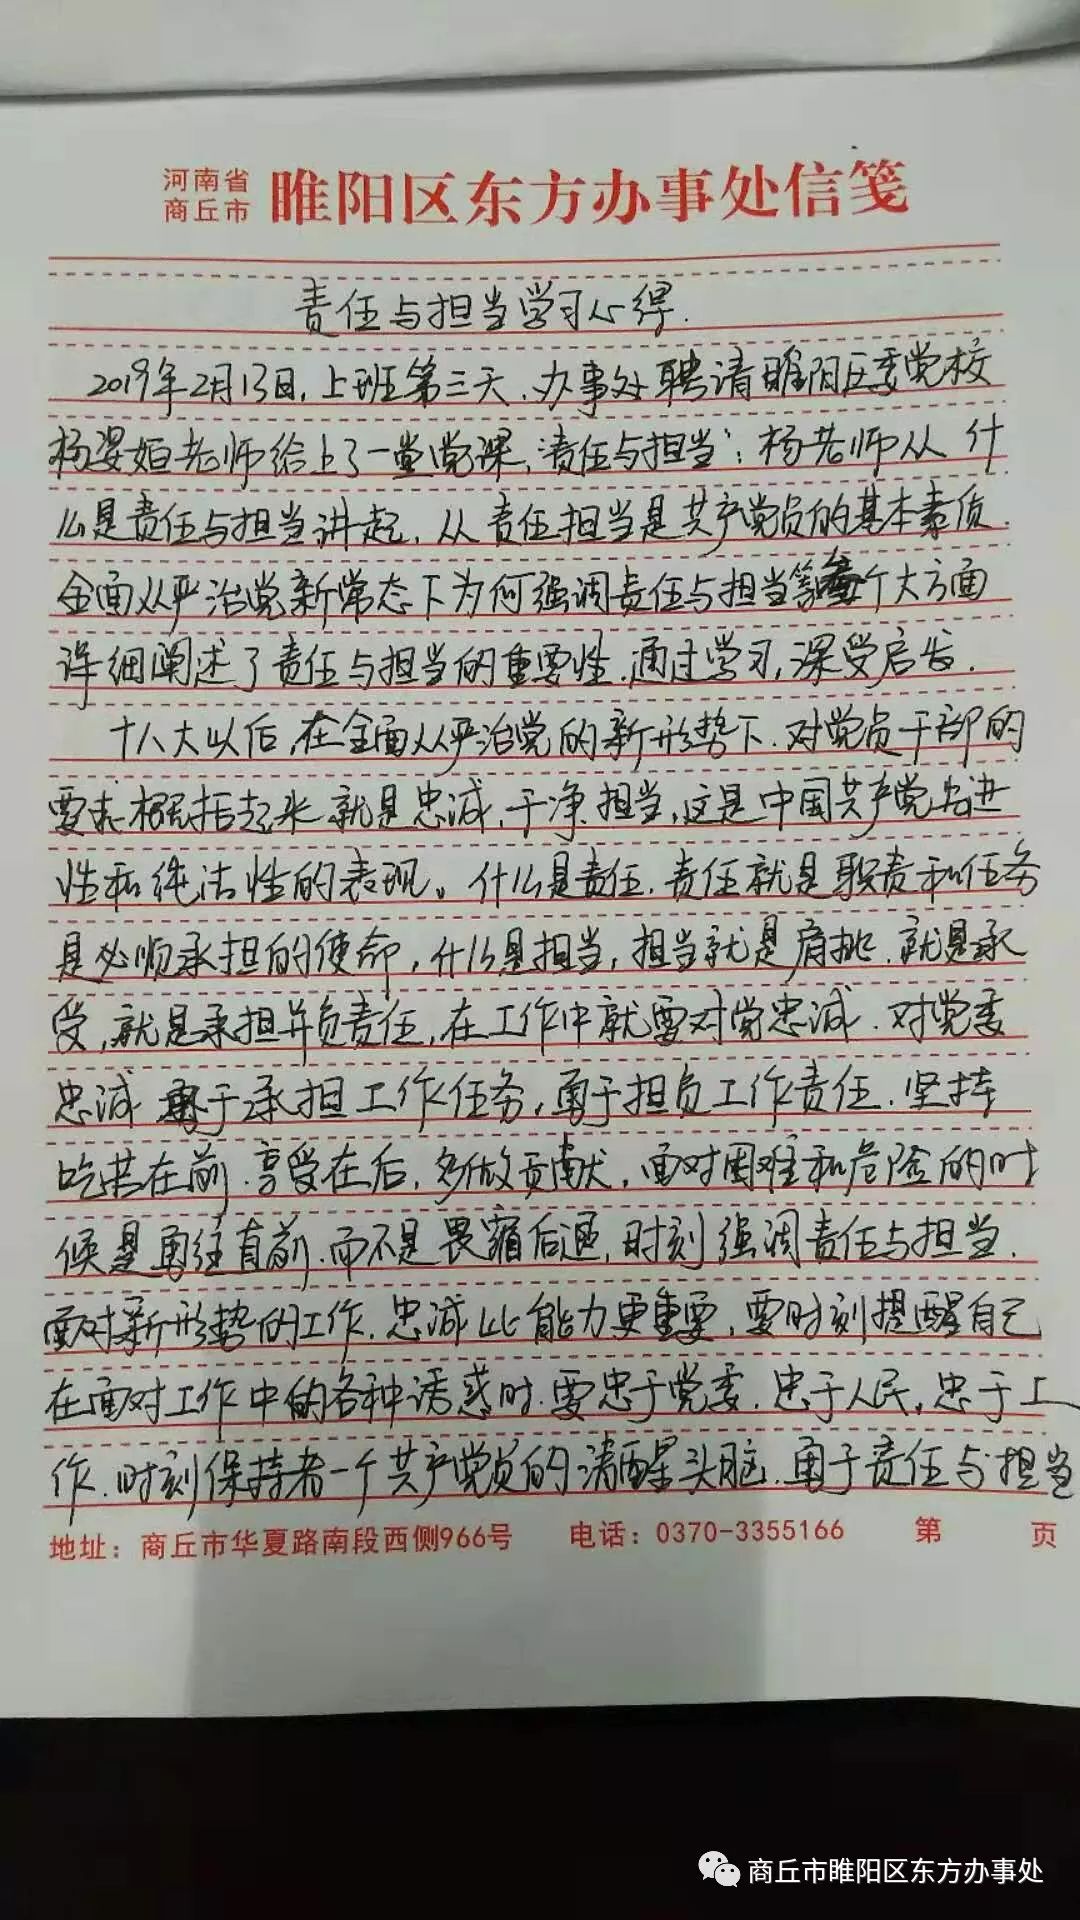 河南省
商丘市
睢阳区东方办事处信笺
责任与担当学习心得.
2019年2月13日,上班第三天,办事处聘请睢阳区委党校
杨姿姮老师给上了一堂党课,责任与担当;杨老师从什
么是责任与担当讲起,从责任担当是共产党员的基本素质.
全面从严治党新常态下为何强调责任与担当等个大方面
详细阐述了责任与担当的重要性.通过学习,深受启发.
十八大以后,在全面从严治党的新形势下.对党员干部的
要求概括起来就是忠诚,干净,担当,这是中国共产党先进
性和纯洁性的表现。什么是责任,责任就是职责和任务
是必须承担的使命,什么是担当,担当就是肩挑.就是承
受,就是承担并负责任,在工作中就要对党忠诚.对党委
忠诚 勇于承担工作任务,勇于担负工作责任.坚持
吃苦在前.享受在后,多做贡献,面对困难和危险的时
候是勇往直前.而不是畏缩后退,时刻强调责任与担当.
面对新形势的工作.忠诚比能力更重要,要时刻提醒自己
在面对工作中的各种诱惑时.要忠于党委.忠于人民,忠于工
作.时刻保持着一个共产党员的清醒头脑.勇于责任与担当
地址：商丘市华夏路南段西侧966号 电话：0370-3355166 第 页
商丘市睢阳区东方办事处